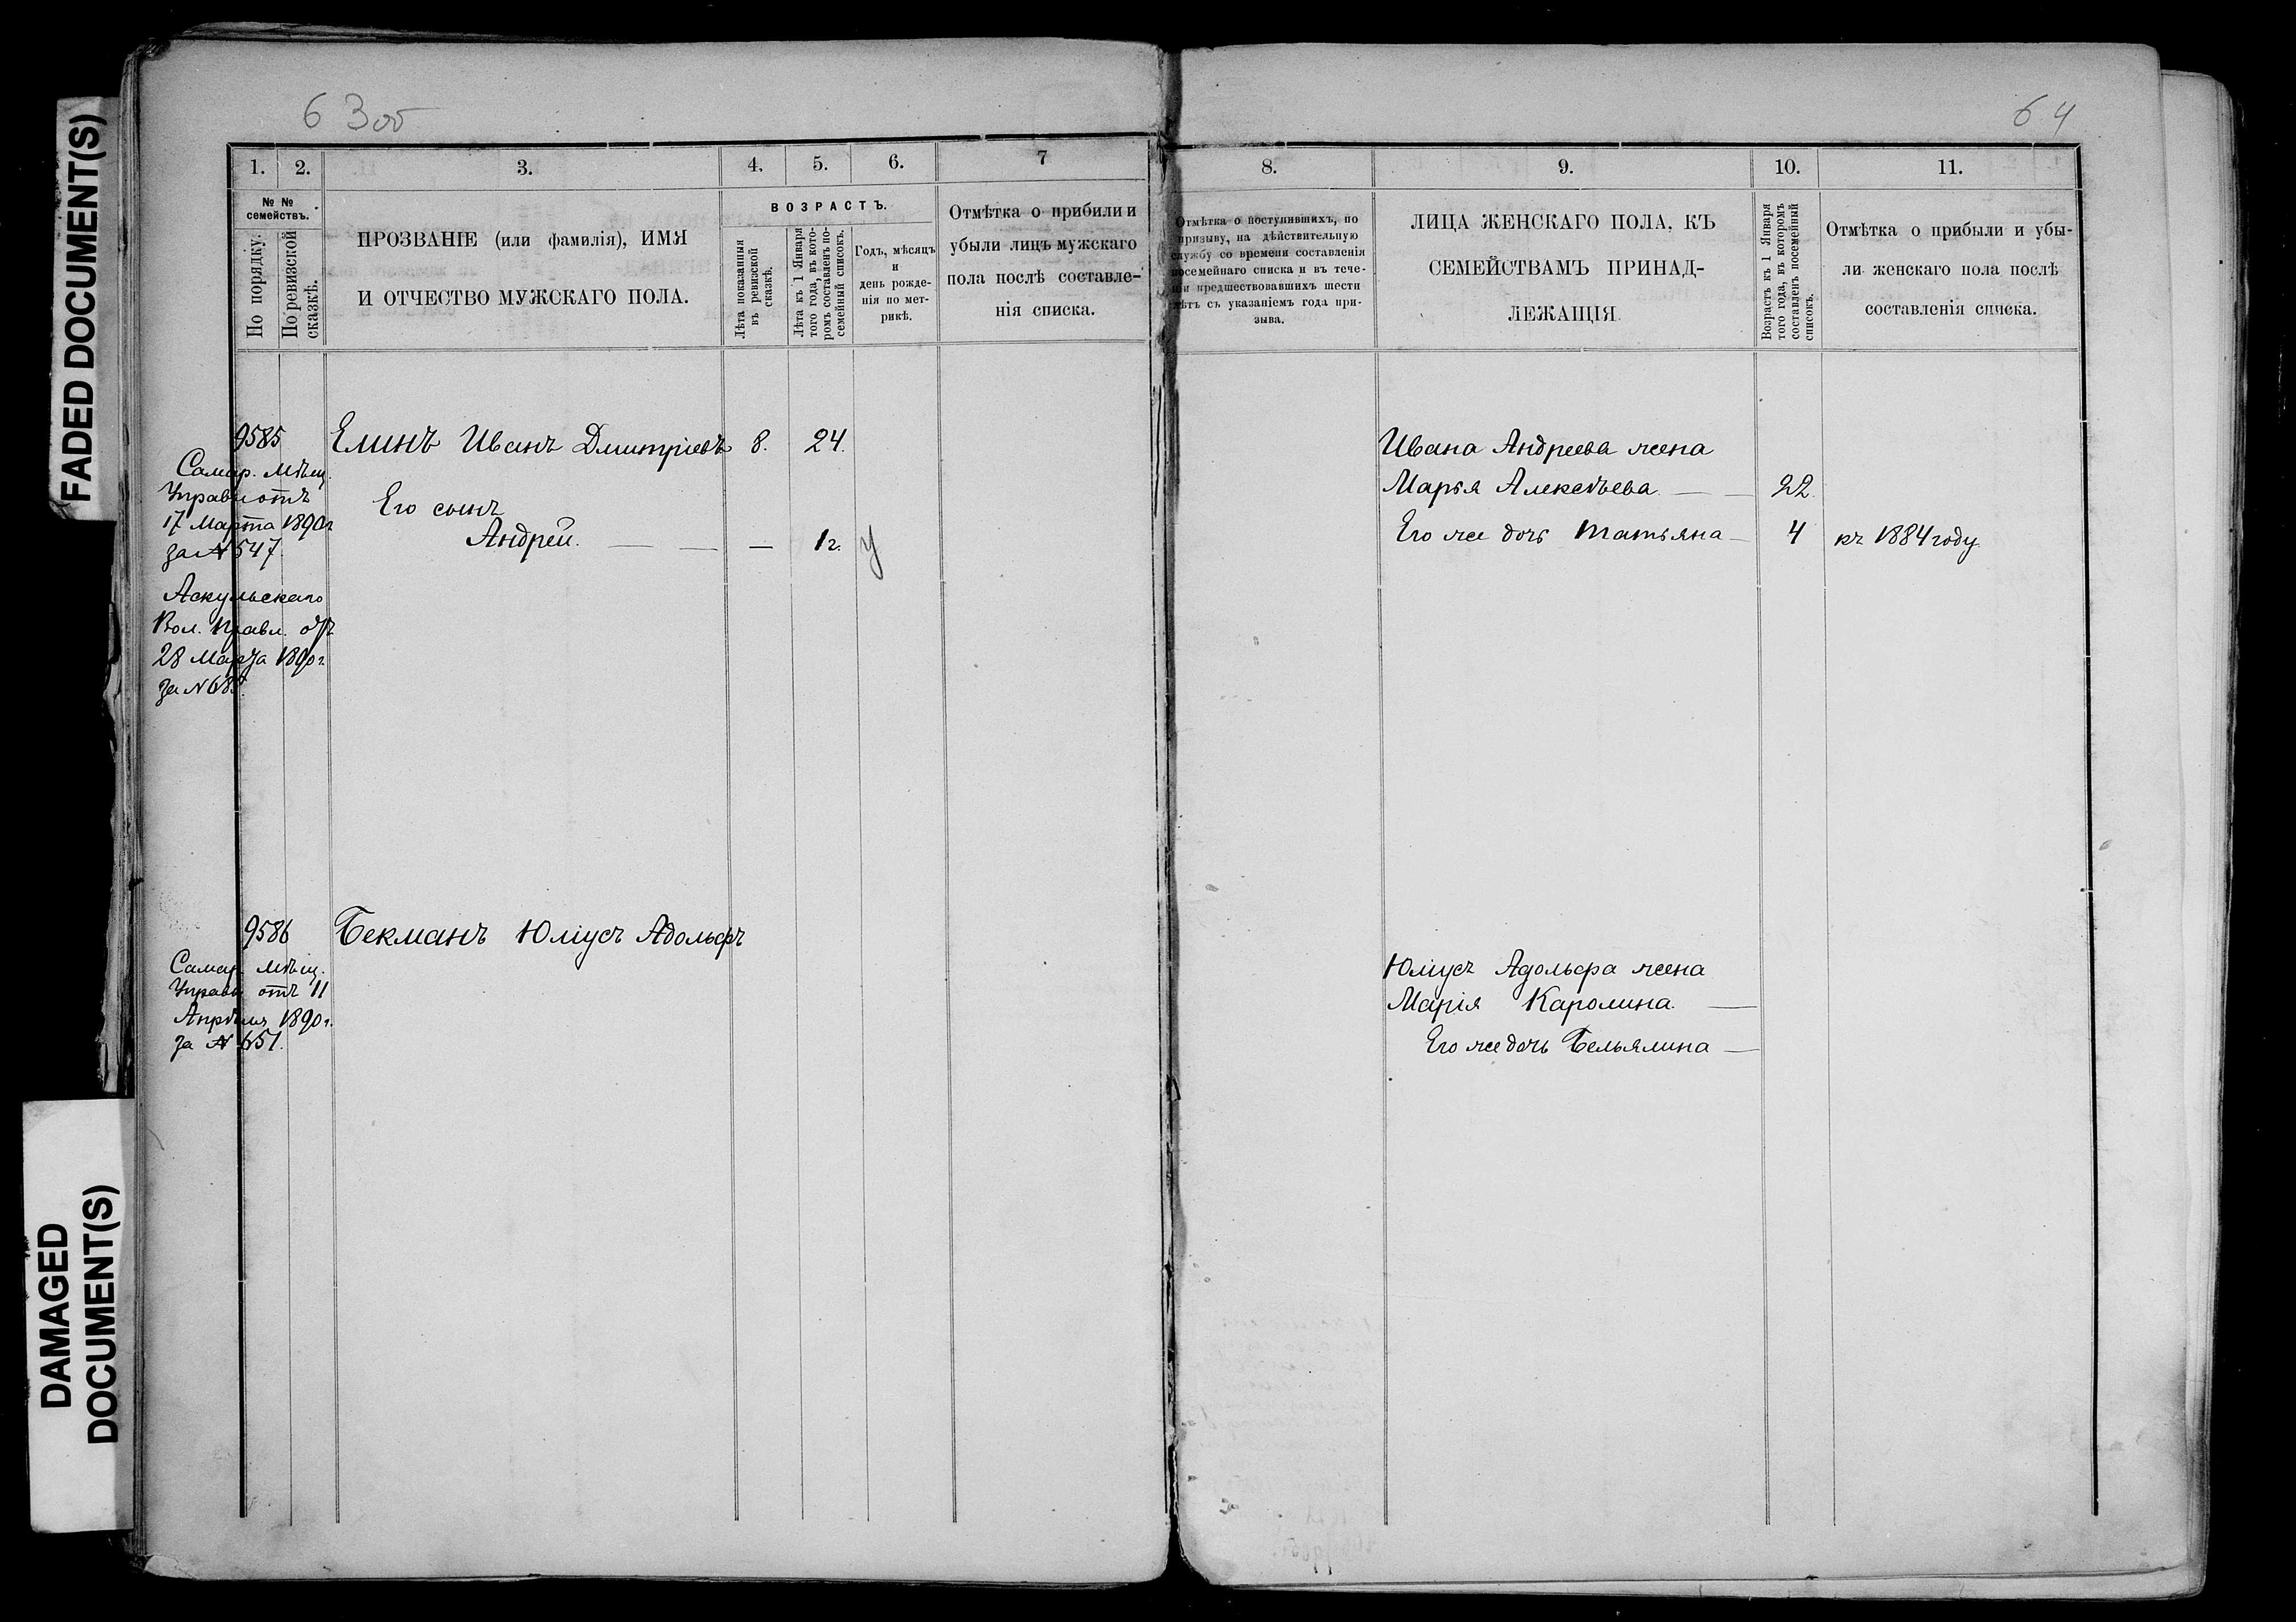 FADED DOCUMENT(S)
DAMAGED
DOCUMENT(S)
63об
1. 2. 3. 4. 5. 6. 7
№ №
семействъ.
По порядку.
По ревизской
сказкѣ.
ПРОЗВАНІЕ (или фамилія), ИМЯ
И ОТЧЕСТВО МУЖСКАГО ПОЛА.
ВОЗРАСТЪ.
Лѣта показанныя
въ ревизской
сказкѣ.
Лѣта къ 1 Января
того года, въ кото-
ромъ составленъ по-
семейный списокъ.
Годъ, мѣсяцъ
и
день рожде-
нія по мет-
рикѣ.
Отмѣтка о прибыли и
убыли лицъ мужскаго
пола послѣ составле-
нія списка.
9585
Самар. Мѣщ.
Управы отъ
17 Марта 1890г
за № 547.
Аскульскаго
Вол. Правл. отъ
28 Марта 1890г
Елинъ Иванъ Дмитріевъ 8. 24.
Его сынъ
Андрей. — — — 1 г. у
9586
Самар. Мѣщ.
Управы отъ 11
Апрѣля 1890г.
за № 651.
Бекманъ Юліусъ Адольфъ
64
8. 9. 10. 11.
Отмѣтка о поступившихъ, по
призыву, на дѣйствительную
службу со времени составленія
посемейнаго списка и въ тече-
ніи предшествовавшихъ шести
лѣтъ съ указаніемъ года при-
зыва.
ЛИЦА ЖЕНСКАГО ПОЛА, КЪ
СЕМЕЙСТВАМЪ ПРИНАД-
ЛЕЖАЩІЯ.
Возрастъ къ 1 Января
того года, въ которомъ
составленъ посемейный
списокъ.
Отмѣтка о прибыли и убы-
ли женскаго пола послѣ
составленія списка.
Ивана Андреева жена
Марья Алексѣева — — 22
Его же дочь Татьяна — 4 къ 1884 году.
Юліусъ Адольфа жена
Марія Каролина. —
Его же дочь Бельялина —